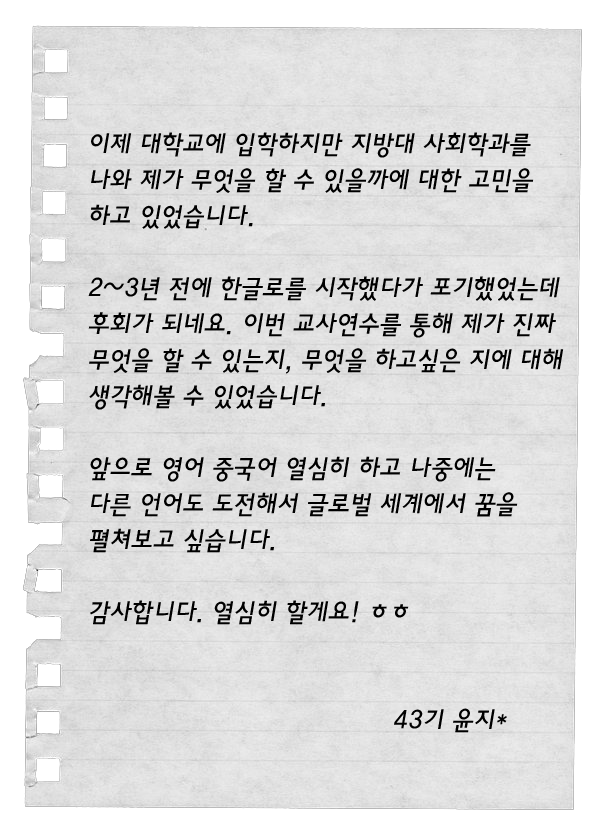 이제 대학교에 입학하지만 지방대 사회학과를
나와 제가 무엇을 할 수 있을까에 대한 고민을
하고 있었습니다.
2~3년 전에 한글로를 시작했다가 포기했었는데
후회가 되네요. 이번 교사연수를 통해 제가 진짜
무엇을 할 수 있는지, 무엇을 하고싶은 지에 대해
생각해볼 수 있었습니다.
앞으로 영어 중국어 열심히 하고 나중에는
다른 언어도 도전해서 글로벌 세계에서 꿈을
펼쳐보고 싶습니다.
감사합니다. 열심히 할게요! ㅎㅎ
43기 윤지*